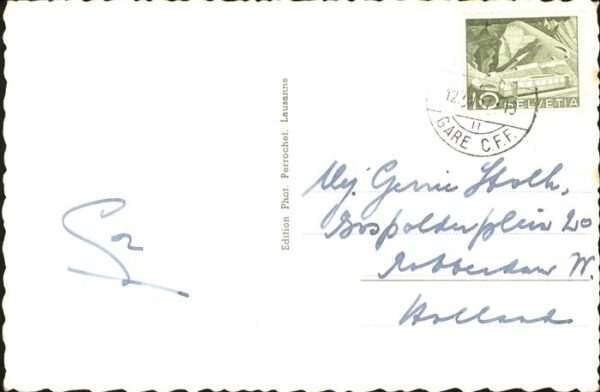 10 HELVETIA
12.
11
GARE C.F.F.
Edition Phot. Perrochet, Lausanne
Mej. Gerrie Stolk,
Bospolderplein 20
Rotterdam W.
Holland